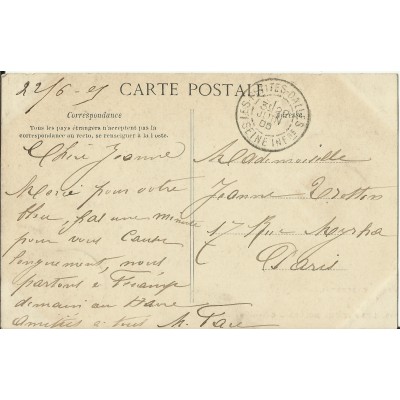 CARTE POSTALE
22/6-05
Correspondance
Tous les pays étrangers n'acceptent pas la
correspondance au recto, se renseigner à la Poste.
Adresse
LES PETITES-DALLES
SEINE INFRE
Chère Jeanne
Merci pour votre
bleu, pas une minute
pour vous causer
longuement, nous
partons à Fécamp
demain au Havre
amitiés à tous M.
Mademoiselle
Jeanne
17 Rue Myrha
Paris